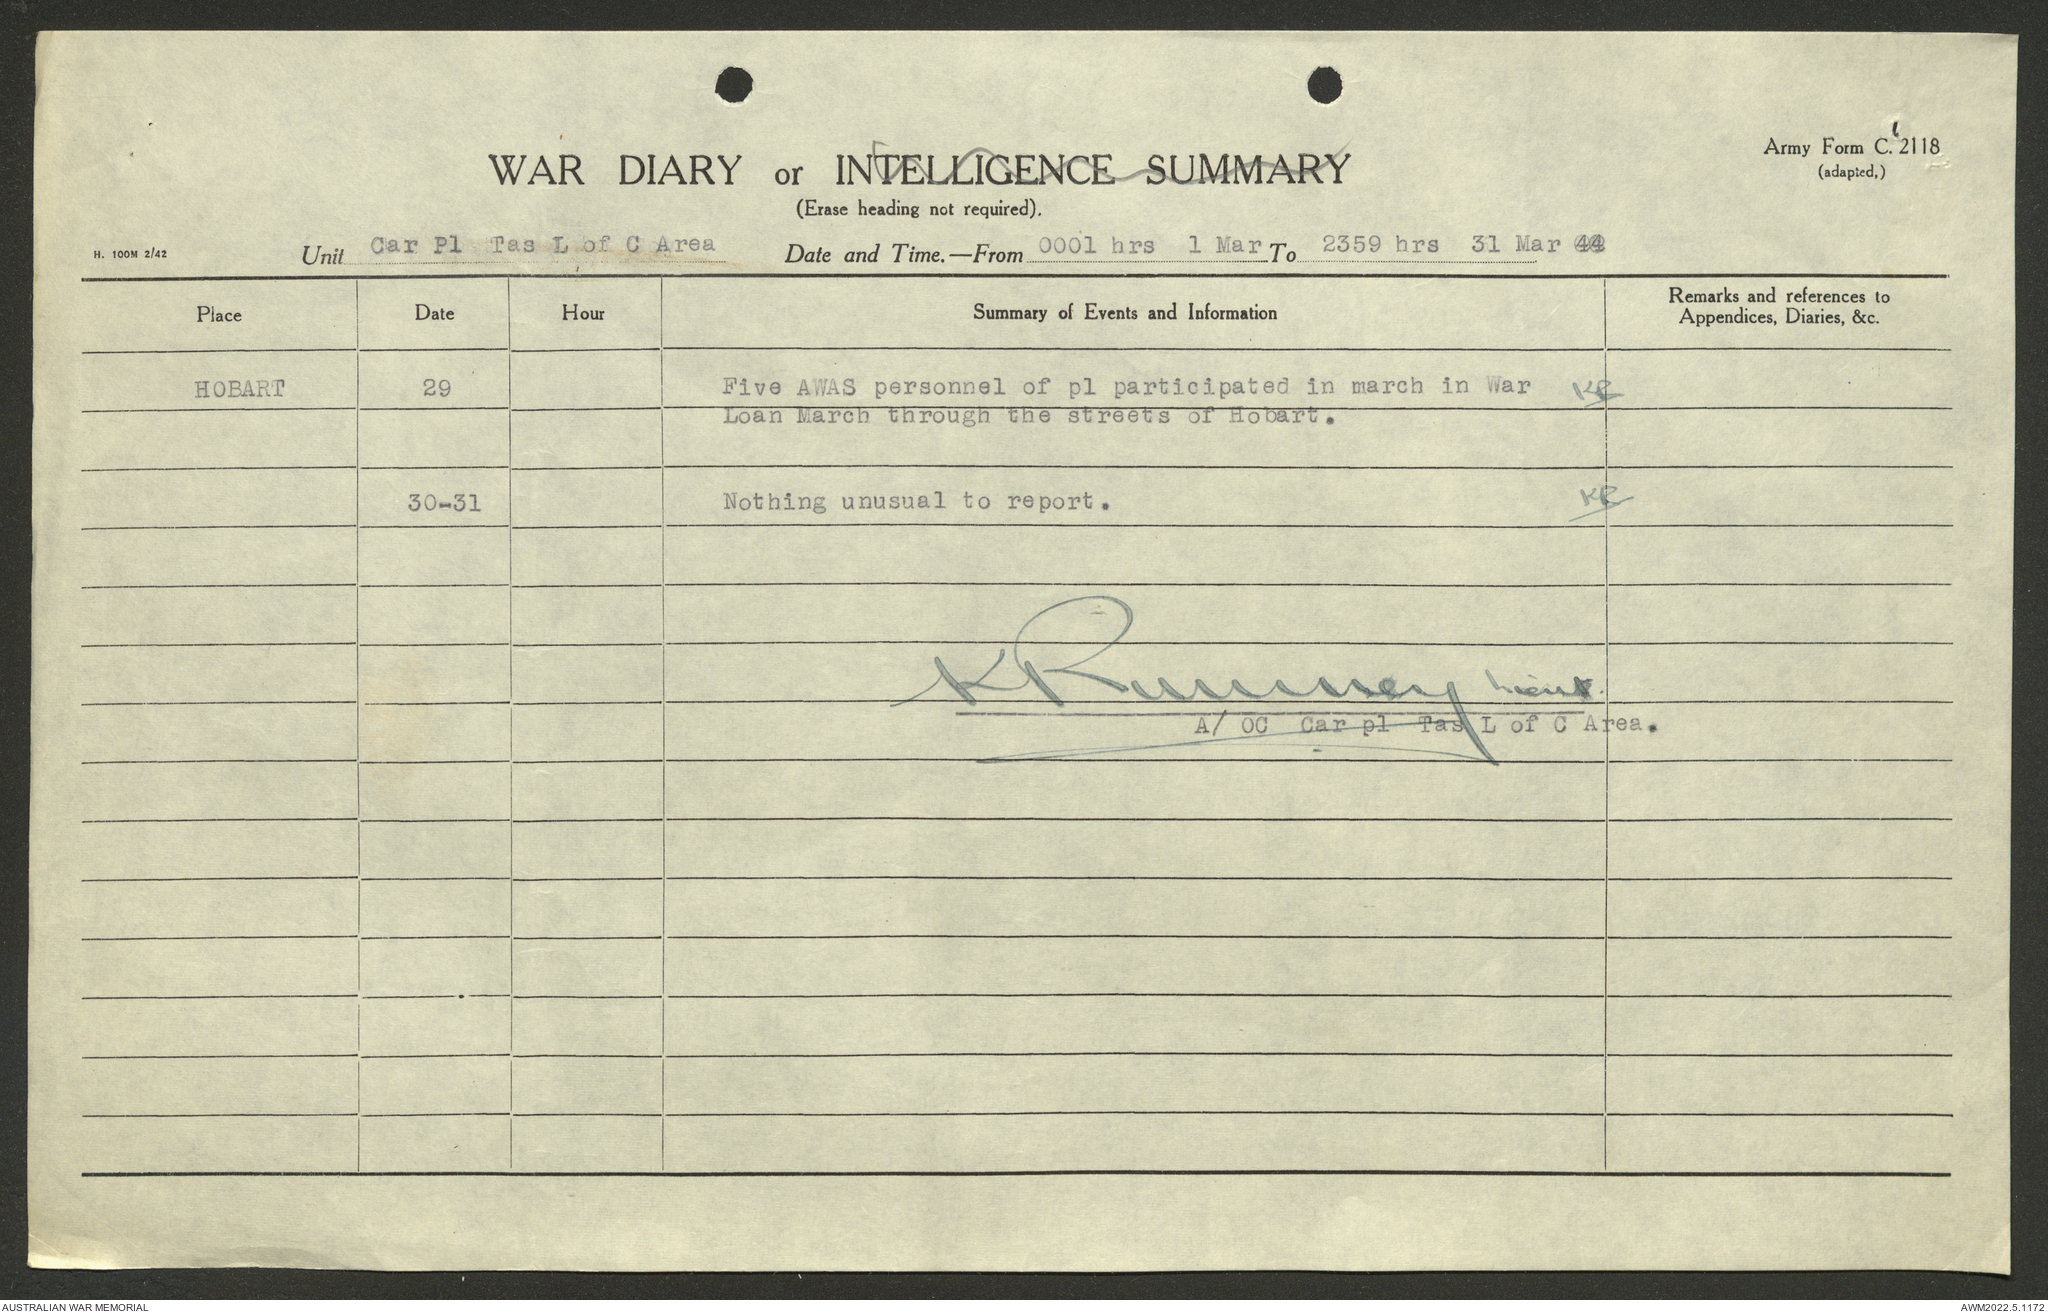 Army Form C. 2118
(adapted,)
WAR DIARY or INTELLIGENCE SUMMARY
(Erase heading not required).
H. 100M 2/42
Unit Car Pl Tas L of C Area Date and Time.—From 0001 hrs 1 Mar To 2359 hrs 31 Mar 44
Place Date Hour Summary of Events and Information Remarks and references to
Appendices, Diaries, &c.
HOBART 29 Five AWAS personnel of pl participated in march in War KR
Loan March through the streets of Hobart.
30-31 Nothing unusual to report. KR
K Rumney Lieut.
A/ OC Car pl Tas L of C Area.
AUSTRALIAN WAR MEMORIAL
AWM2022.5.1172